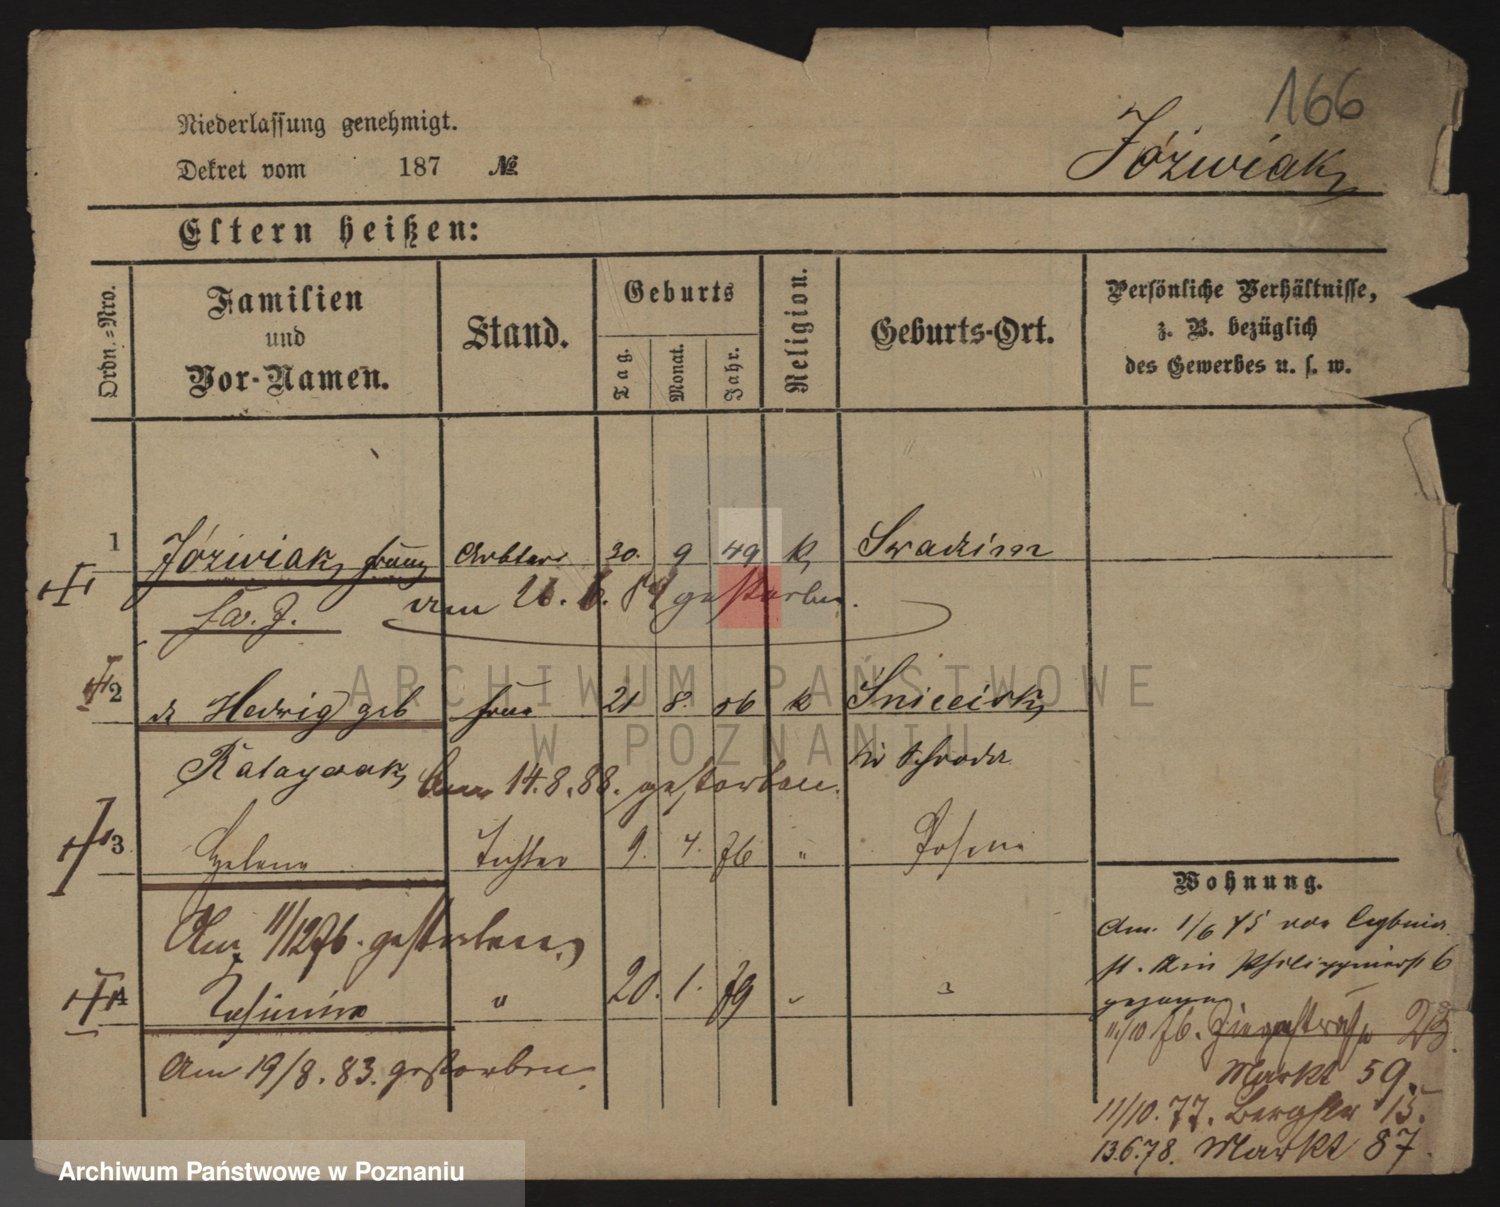 166
Niederlassung genehmigt.
Dekret vom 187 №
Józwiak
Eltern heißen:
Ordn.=Nro.
Familien und Vor-Namen.
Stand.
Geburts
Tag.
Monat.
Jahr.
Religion.
Geburts-Ort.
Persönliche Verhältnisse,
z. B. bezüglich
des Gewerbes u. s. w.
1 Józwiak, Franz 30. 9 49 k Swadzim
am 26. 6. 89 gestorben.
2 Hedwig geb Frau 21 8. 56 k
Ratayczak Am 14.8.88. gestorben.
3 Helene Tochter 9. 4. 76 " Posen
Am 11/12 76. gestorben
4 " 20. 1. 79 " "
Am 19/8. 83. gestorben.
Wohnung.
Am. 1/6 75 von
6
gezogen
11/10 76. 23.
Markt 59.
11/10. 77. Bergstr 15.
13.6.78. Markt 87.
ARCHIWUM PAŃSTWOWE
W POZNANIU
Archiwum Państwowe w Poznaniu